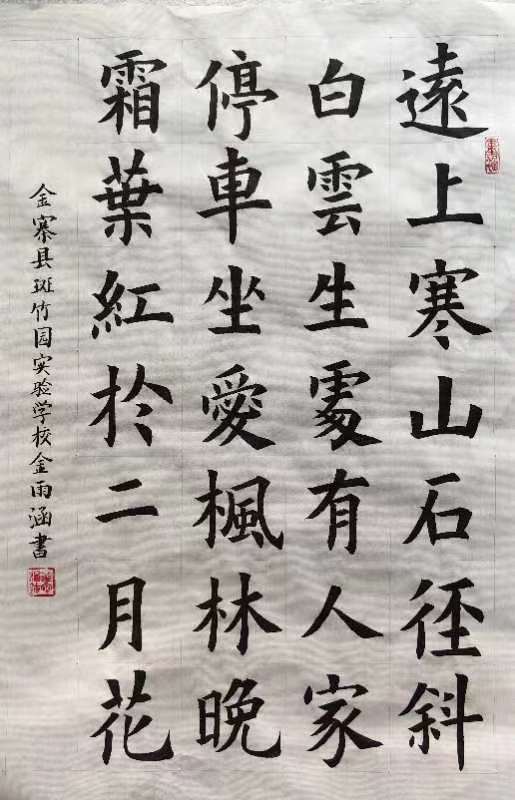 遠上寒山石徑斜
白雲生處有人家
停車坐愛楓林晚
霜葉紅於二月花
金寨县斑竹园实验学校金雨涵書